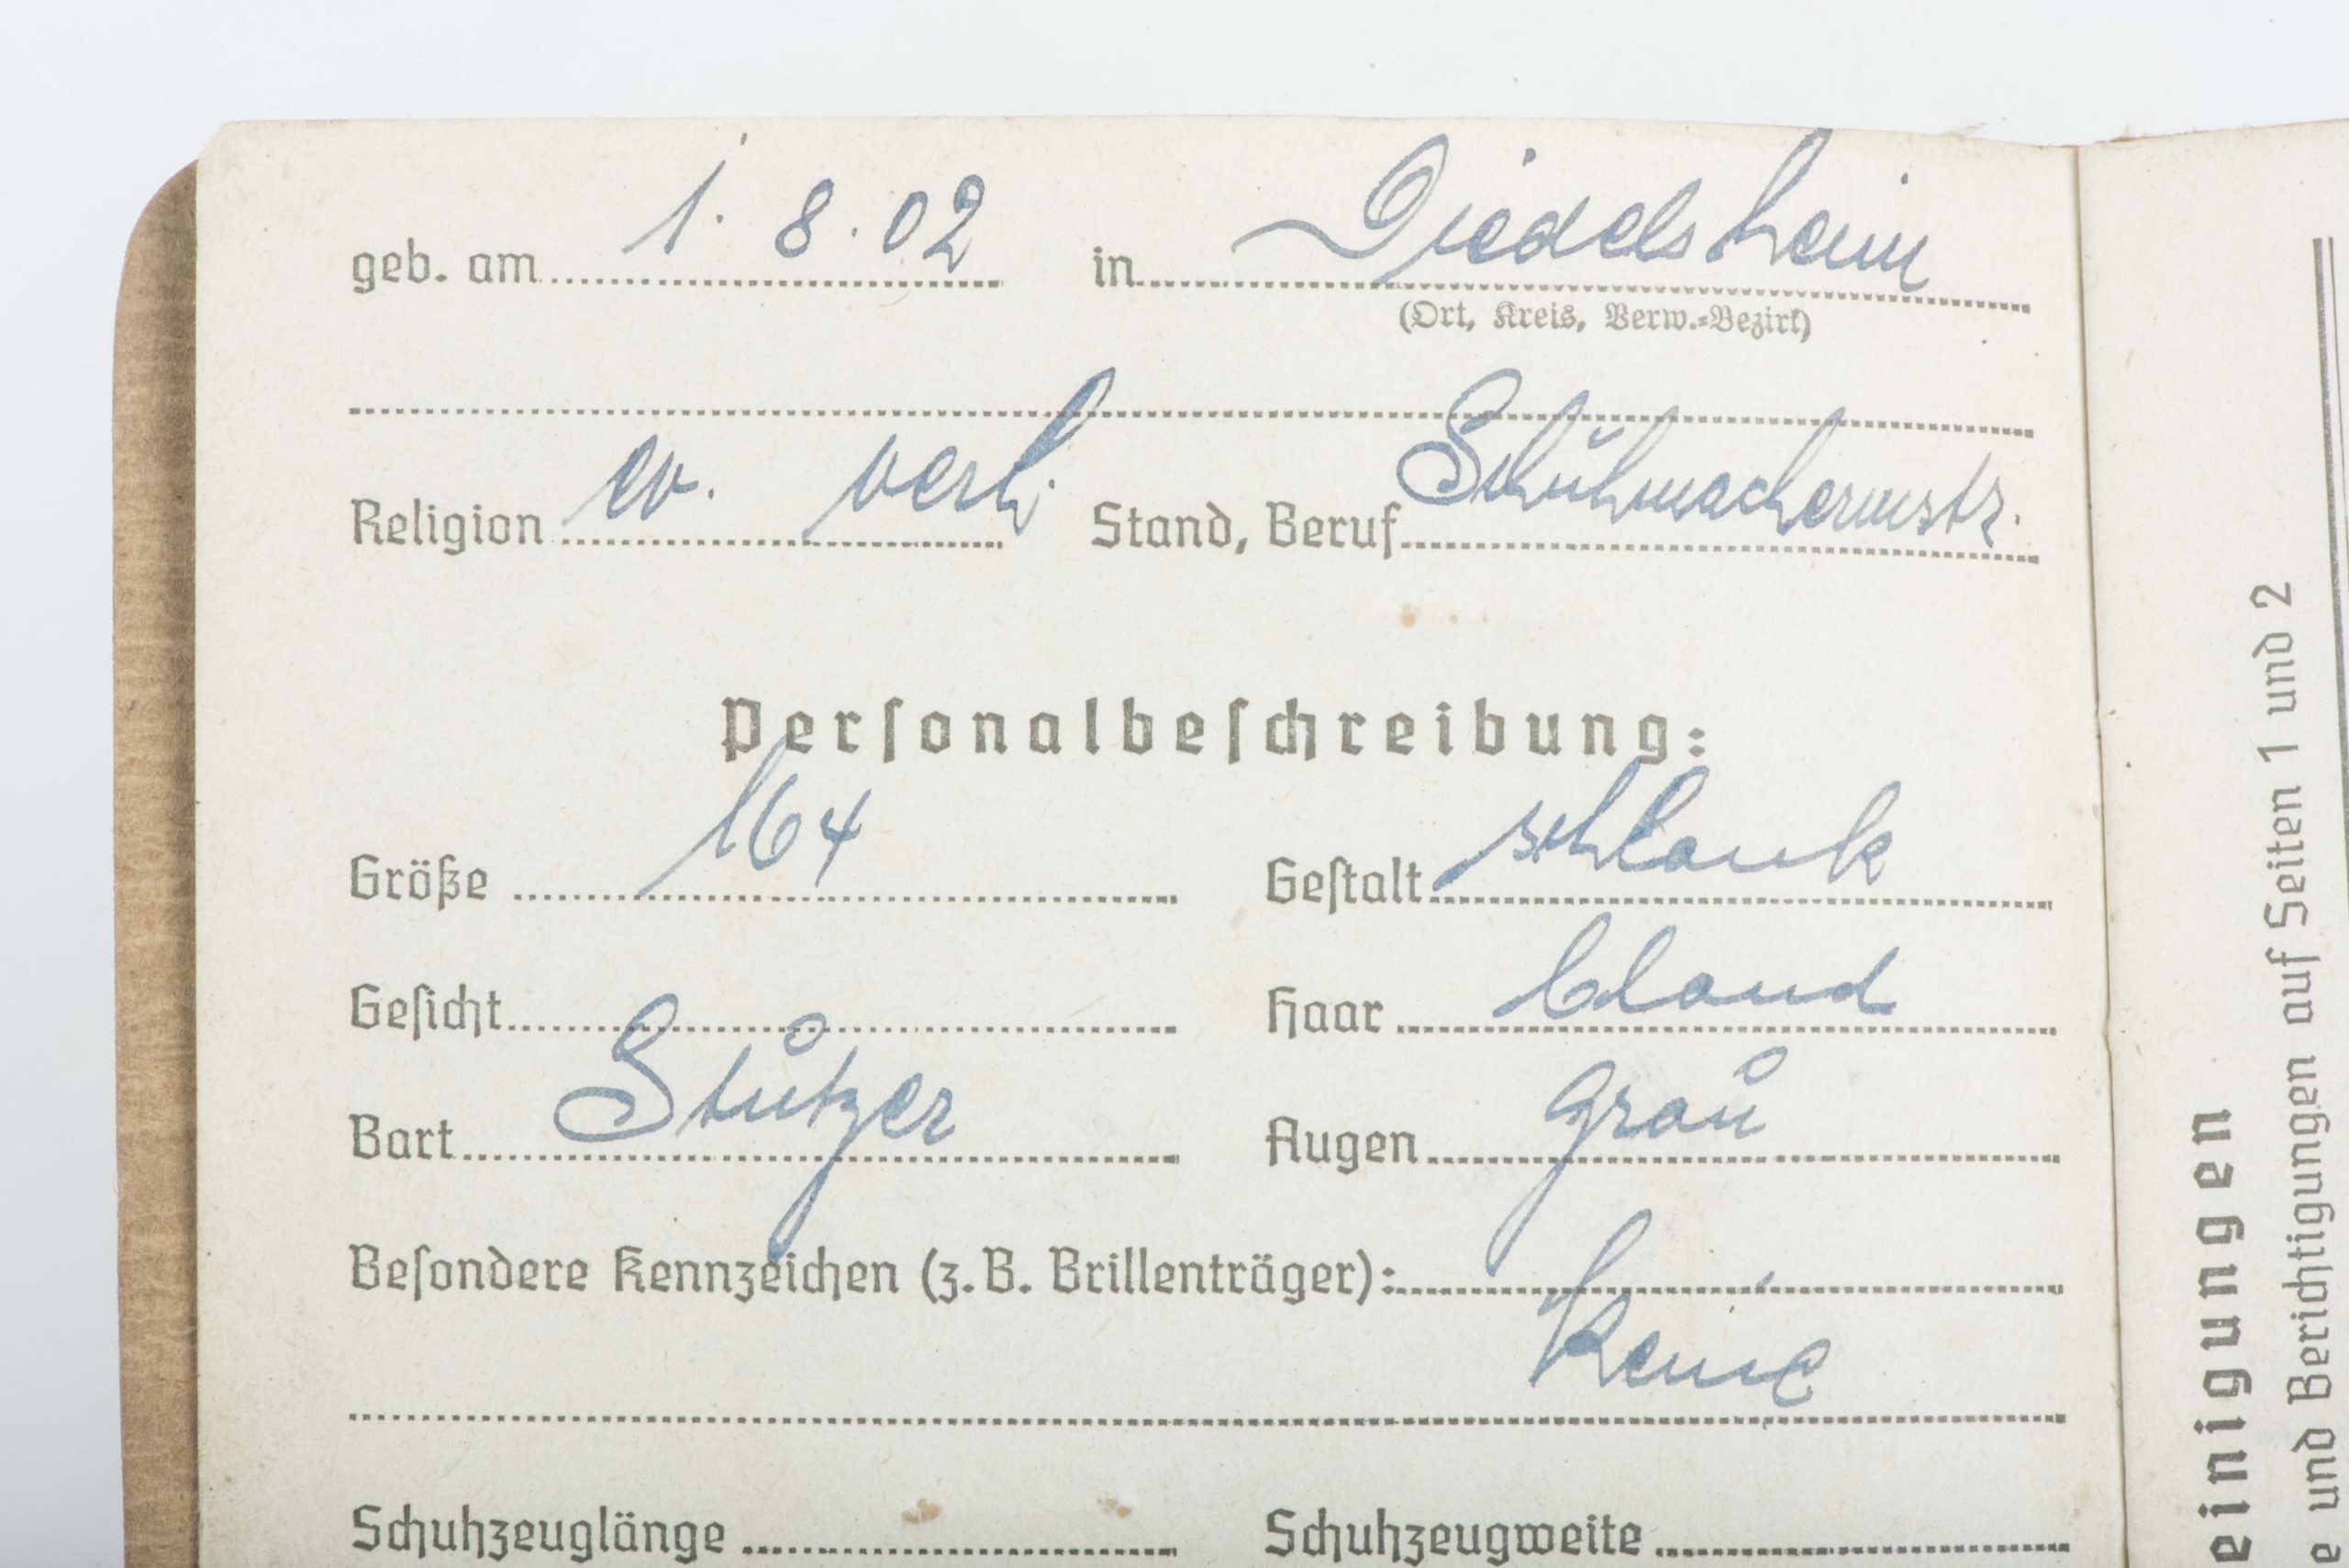 geb. am 1. 8. 02 in Diedelsheim
(Ort, Kreis, Verw.-Bezirk)
Religion ev. verh. Stand, Beruf Schuhmachermstr.
Personalbeschreibung:
Größe 164 Gestalt schlank
Gesicht Haar blond
Bart Stutzer Augen grau
Besondere Kennzeichen (z. B. Brillenträger):
Keine
Schuhzeuglänge Schuhzeugweite
einigungen
e und Berichtigungen auf Seiten 1 und 2